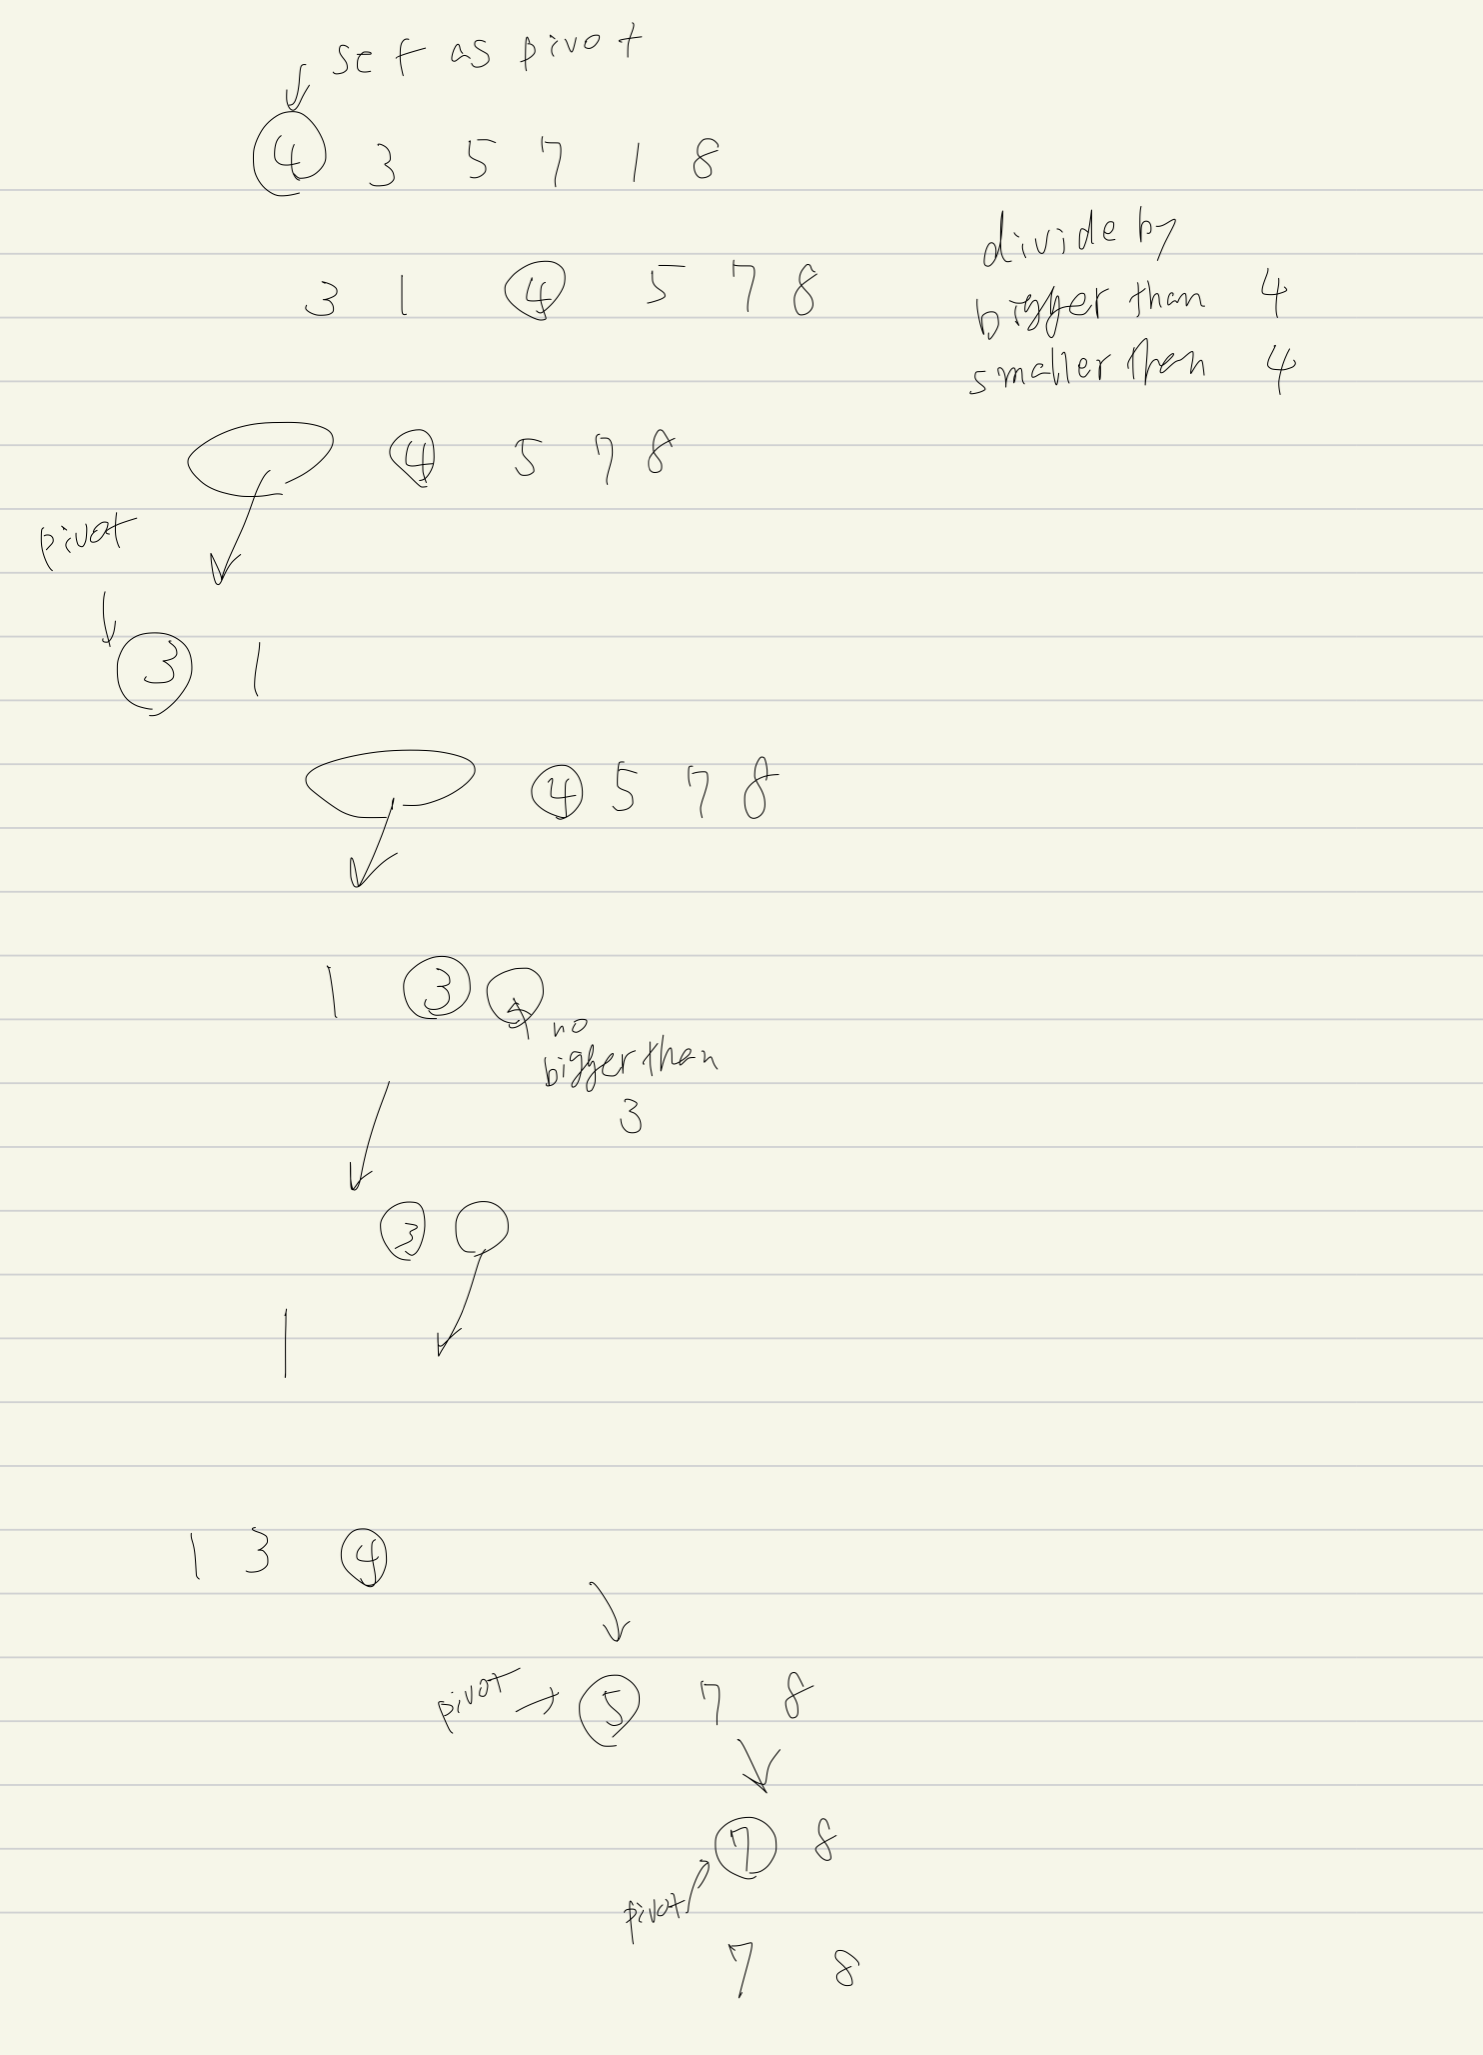 set as pivot
4 3 5 7 1 8
3 1 4 5 7 8
divide by
bigger than 4
smaller than 4
4 5 7 8
pivot
3 1
4 5 7 8
1 3
no
bigger than
3
3
1
1 3 4
pivot 5 7 8
7 8
pivot
7 8